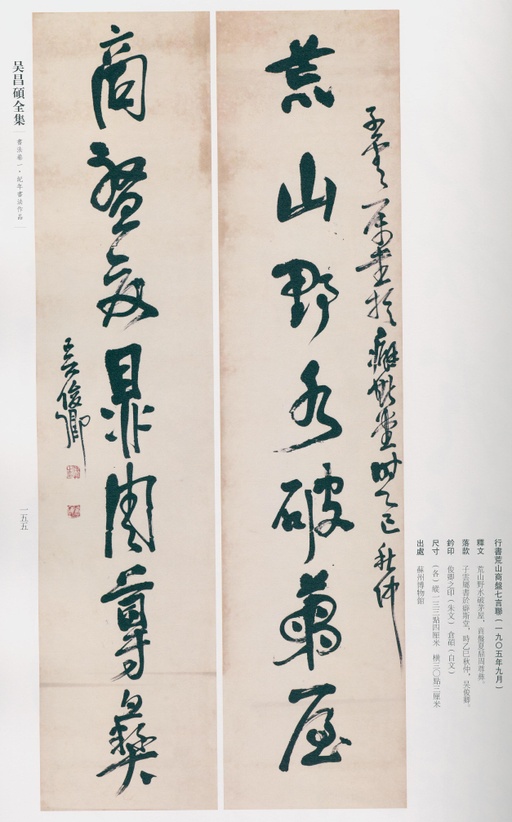 荒山野水破茅屋
子雲属書於癖斯堂時乙巳秋仲
商盤夏鼎周尊彝
吴俊卿
行書荒山商盤七言聯（一九〇五年九月）
釋文 荒山野水破茅屋，商盤夏鼎周尊彝。
落款 子雲屬書於癖斯堂，時乙巳秋仲，吴俊卿。
鈐印 俊卿之印（朱文） 倉碩（白文）
尺寸 （各）縱一三三點四厘米 橫三〇點三厘米
出處 蘇州博物館
吴昌碩全集
書法卷一·紀年書法作品
一五五